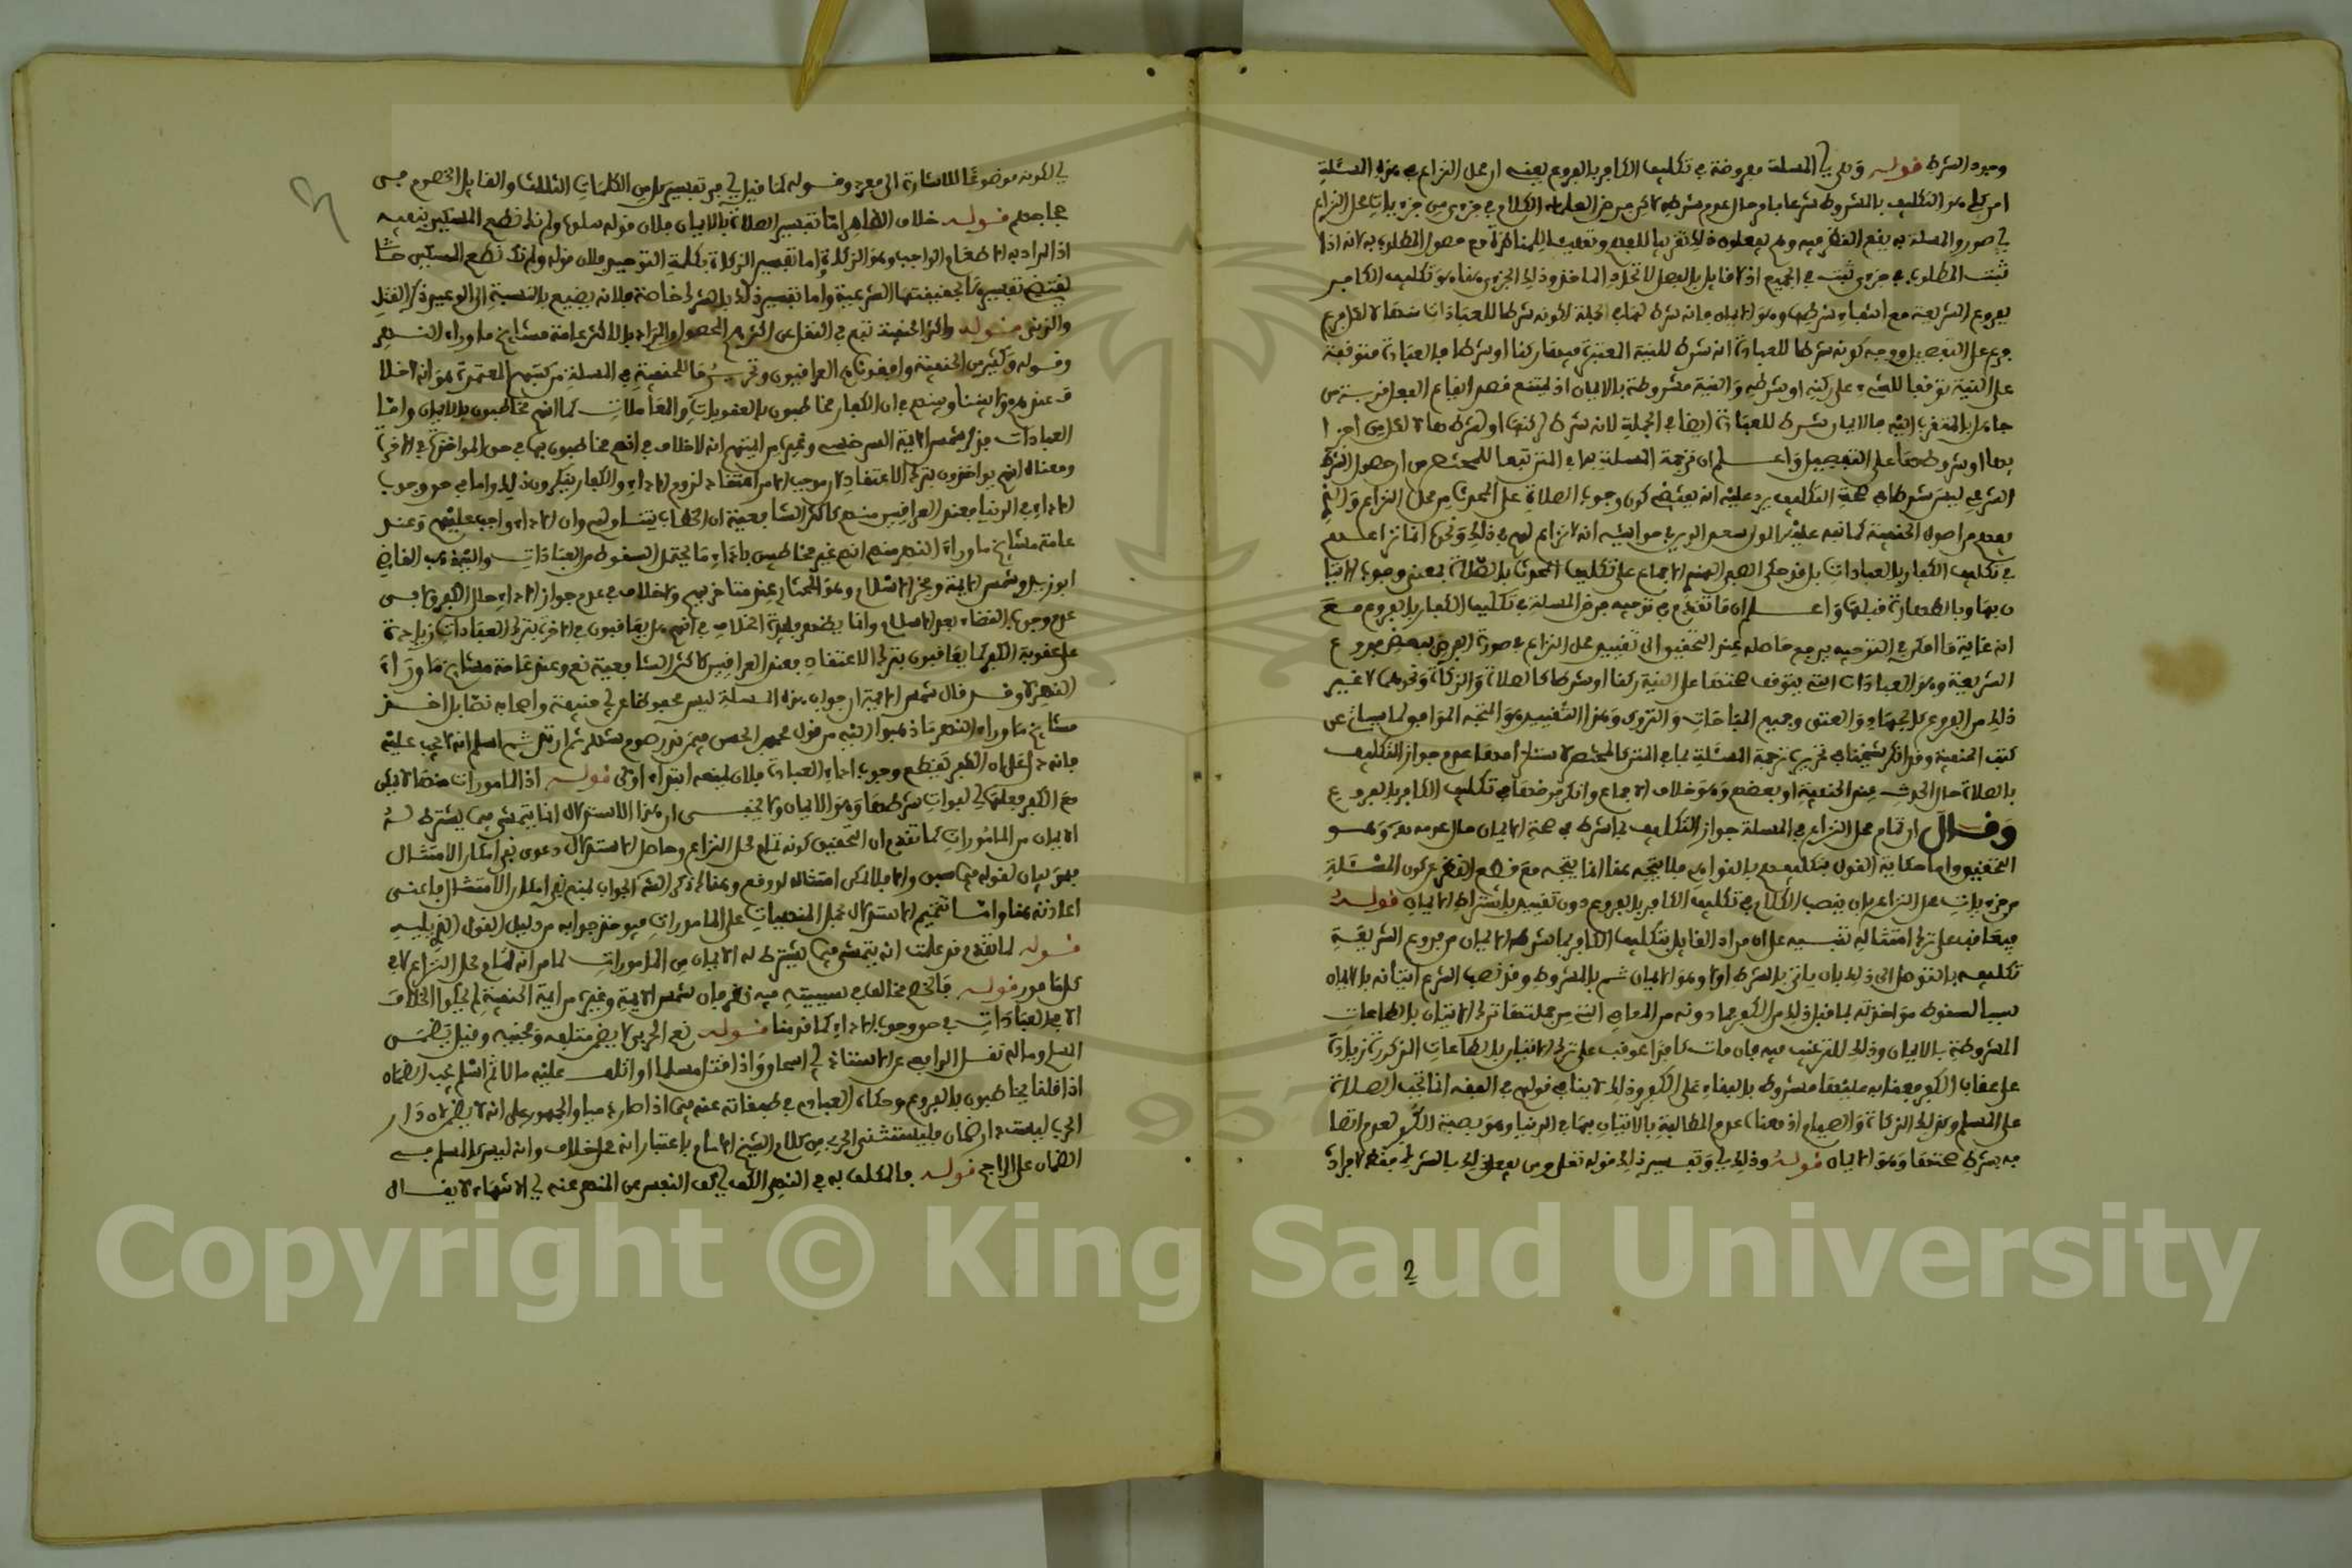 وجود الشرط قوله وهي اي المسئلة مفروضة في تكليف الكافر بالفروع يعني ان محل النزاع في هذه المسئلة
امر كلي هو التكليف بالمشروط شرعا باو حال عدم شرطه لاكن فرض العلماء الكلام في جزءي من جزءيات محل النزاع
في صور والمسئلة به يقع النظر فيه وهم يفعلون ذلك تقريبا للفهم وتسهيلا للمناظرة مع حصول المطلوب به لانه اذا
ثبت المطلوب في جزءي ثبت في الجميع اذ لا قايل بالفصل لاتحاد الماخذ وذلك الجزءي هنا هو تكليف الكافر
بفروع الشريعة مع انتفاء شرطها وهو الايمان فانه شرط لها في الجملة لكونه شرطا للعبادات منها لا لكل فرع
فرع على التفصيل ووجه كونه شرطا للعبادة انه شرط للنية المعتبرة فيها ركنا او شرطا فالعبادة متوقفة
على النية توقفا للشيء على ركنه او شرطه والنية مشروطة بالايمان اذ يمتنع قصد ايقاع الفعل قربة من
جاهل بالمتقرب اليه فالايمان شرط للعبادة ايضا في الجملة لانه شرط لركنها او لشرطها لا لكل من اجزا
يها او شروطها على التفصيل واعلم ان ترجمة المسئلة بما في المتن تبعا للمختصر من ان حصول الشرط
الشرعي ليس شرطا في صحة التكليف يرد عليه انه يقتضي كون وجوب الصلاة على المحدث من محل النزاع والذي
يعلم من اصول الحنفية كما نبه عليه المولى سعد الدين في حواشيه انه لا نزاع لهم في ذلك ونحوه انما نزاعهم
في تكليف الكفار بالعبادات بل قد حكى الصفي الهندي الاجماع على تكليف المحدث بالصلاة بمعنى وجوب الاتيا
ن بها وبالطهارة قبلها واعلم ان ما تقدم في توجيه فرض المسئلة في تكليف الكفار بالفروع مع
انه غاية ما امكن في التوجيه يرجع حاصله عند التحقيق الى تقييد محل النزاع في صورة الفرض ببعض فروع
الشريعة وهو العبادات التي يتوقف صحتها على النية ركنا او شرطا كالصلاة والزكاة ونحوهما لا غير
ذلك من الفروع كالجهاد والعتق وجميع المباحات والتروك وهذا التقييد هو المتجه الموافق لما سياتي عن
كتب الحنفية وقد انكر شيخنا في تحريره ترجمة المسئلة بما في المتن كالمختصر لاستلزامها عدم جواز التكليف
بالصلاة حال الحدث عند الحنفية او بعضهم وهو خلاف الاجماع وانكر فرضها في تكليف الكافر بالفروع
وقال ان تمام محل النزاع في المسئلة جواز التكليف بما شرط في صحته الايمان حال عدمه وهو
التحقيق واما حكاية القول بتكليفهم بالنواهي فلا يتجه هنا انما يتجه مع قطع النظر عن كون المسئلة
من جزءيات محل النزاع بان ينصب الكلام في تكليف الكافر بالفروع دون تقييد باشتراط الايمان قوله
فيعاقب على ترك امتثاله تنبيه على ان مراد القايل بتكليف الكافر بما شرطه الايمان من فروع الشريعة
تكليفه بالتوصل الى ذلك بان ياتي بالشرط اولا وهو الايمان ثم بالمشروط وقد نصب الشرع اتيانه بالايمان
سببا لسقوط مؤاخذته بما قبل ذلك من الكفر فما دونه من المعاصي التي من جملتها ترك الاتيان بالطاعات
المشروطة بالايمان وذلك للترغيب فيه فان مات كافرا عوقب على ترك الاتيان بالطاعات المذكورة زيادة
على عقاب الكفر فعقابه عليها مشروط بالبقاء على الكفر وذلك لا ينافي قولهم في الفقه انما تجب الصلاة
على المسلم وكذلك الزكاة والصيام اذ معناه عدم المطالبة بالاتيان بها في الدنيا وهو بصفة الكفر لعدم اتصا
فه بشرط صحتها وهو الايمان قوله وذلك اي وتفسير ذلك في قوله تعالى ومن يفعل ذلك بالشرك فقط لا مراد
في لكونه موضوعا للاشارة الى مفرد وقوله كما قيل اي من تفسير كل من الكلمات الثلاث والقايل الخصوم في
مجاجهم قوله خلاف الظاهر اما تفسير الصلاة بالايمان فلان قوله تعالى ولم نك نطعم المسكين ينفيه
اذ المراد به الاطعام الواجب وهو الزكاة واما تفسير الزكاة بكلمة التوحيد فلان قوله ولم نك نطعم المسكين
يقتضي تفسيرها بحقيقتها الشرعية واما تفسير ذلك بالشرك خاصة فلانه يضيع بالنسبة الى الوعيد ذكر القتل
والزنى قوله واكثر الحنفية تبع في النقل عن اكثرهم المحصول والمراد بالاكثر عامة مشايخ ما وراء النهر
وقوله وكثير من الحنفية وافقونا هم العراقيون وتحرير ما للحنفية في المسئلة من كتبهم المعتمدة هو انه لا خلا
ف عندهم وايضا وبينهم في ان الكفار مخاطبون بالعقوبات والمعاملات كما انهم مخاطبون بالايمان واما
العبادات فذكر شمس الاية السرخسي وغيره من ايمتهم انه لا خلاف في انهم مخاطبون بها في حق المواخذة في الاخرة
ومعناه انهم يواخذون بترك الاعتقاد لان موجب الامر اعتقاد لزوم الاداء والكفار ينكرون ذلك واما في حق وجوب
الاداء في الدنيا فعند العراقيين منهم كاكثر الشافعية ان الخطاب يتناولهم وان الاداء واجب عليهم وعند
عامة مشايخ ما وراء النهر منهم انهم غير مخاطبين باداء ما يحتمل السقوط من العبادات واليه ذهب القاضي
ابو زيد وشمس الاية وفخر الاسلام وهو المختار عند متاخريهم ولا خلاف في عدم جواز الاداء حال الكفر ولا في
عدم وجوب القضاء بعد الاسلام وانما يظهر فايدة الخلاف في انهم هل يعاقبون في الاخرة بترك العبادات زيادة
على عقوبة الكفر كما يعاقبون بترك الاعتقاد فعند العراقيين كاكثر الشافعية نعم وعند عامة مشايخ ما وراء
النهر لا وقد قال شمس الاية ان جواب هذه المسئلة ليس محفوظا عن ابي حنيفة واصحابه نصا بل اخذ
مشايخ ما وراء النهر ما ذهبوا اليه من قول محمد بن الحسن فيمن نذر صوم شهر ثم ارتد ثم اسلم انه لا يجب عليه
فانه دال على ان الكفر يقطع وجوب اداء العبادة فلان يمنعه ابتداء اولى قوله اذ المامورات منها لا يمكن
مع الكفر فعلها اي لفوات شرطها وهو الايمان ولا يخفى ان هذا الاستدلال انما يتمشى فيما يشترط له
الايمان من المامورات كما تقدم ان التحقيق كونه تمام محل النزاع وحاصل الاستدلال دعوى نفي امكان الامتثال
فهو بيان لقوله فيما سبق والا فلا يمكن امتثاله لو وقع وهنالك ذكر الشارح الجواب بمنع نفي امكان الامتثال فاغنى
اعادته هنا واما تتميم الاستدلال بحمل المنهيات على المامورات فيؤخذ جوابه من دليل القول الذي يليه
قوله لما تقدم قد علمت انه يتمشى فيما يشترط له الايمان من المامورات لما مر انه تمام محل النزاع لا في
كل مامور قوله فالخصم مخالف في سببيته فيه نظر فان شمس الاية وغيره من ايمة الحنفية لم يحكوا الخلاف
الا في العبادات في حق وجوب الاداء كما قدمنا قوله نعم الحربي لا يضمن متلفه ومجنيه وقيل يضمن
المسلم وماله نقل الرافعي عن الاستاذ ابي اسحاق واذا قتل مسلما او اتلف عليه مالا ثم اسلم يجب الضمان
اذا قلنا يخاطبون بالفروع وحكاه العبادي في طبقاته عنه فيما اذا صار ذميا والجمهور على انه لا يضمن لان دار
الحرب ليست دار ضمان فليستثنى الحربي من كلام الشيخ الامام باعتبار انه محل خلاف وانه ليس كالمسلم في
الضمان على الراجح قوله فالمكلف به في النهي الكف اي كف النفس عن المنهي عنه اي الانتهاء لا يقال